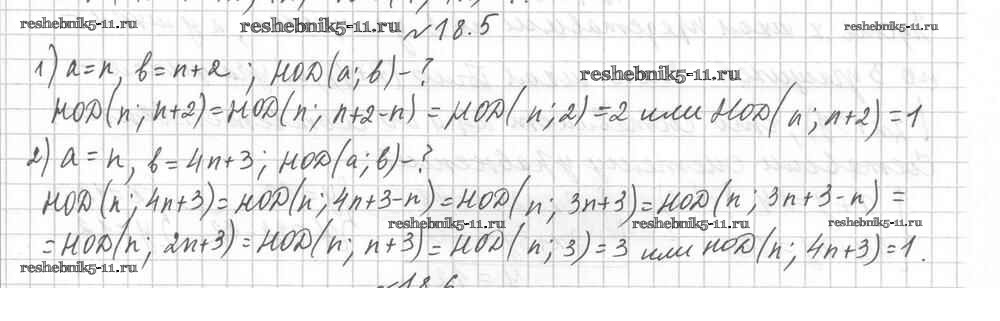 reshebnik5-11.ru reshebnik5-11.ru reshebnik5-11.ru
№18.5
1) a=n, b=n+2; НОД(a; b)-?
reshebnik5-11.ru
НОД(n; n+2)=НОД(n; n+2-n)=НОД(n; 2)=2 или НОД(n; n+2)=1
2) a=n, b=4n+3; НОД(a; b)-?
НОД(n; 4n+3)=НОД(n; 4n+3-n)=НОД(n; 3n+3)=НОД(n; 3n+3-n)=
reshebnik5-11.ru reshebnik5-11.ru
=НОД(n; 2n+3)=НОД(n; n+3)=НОД(n; 3)=3 или НОД(n; 4n+3)=1.
reshebnik5-11.ru